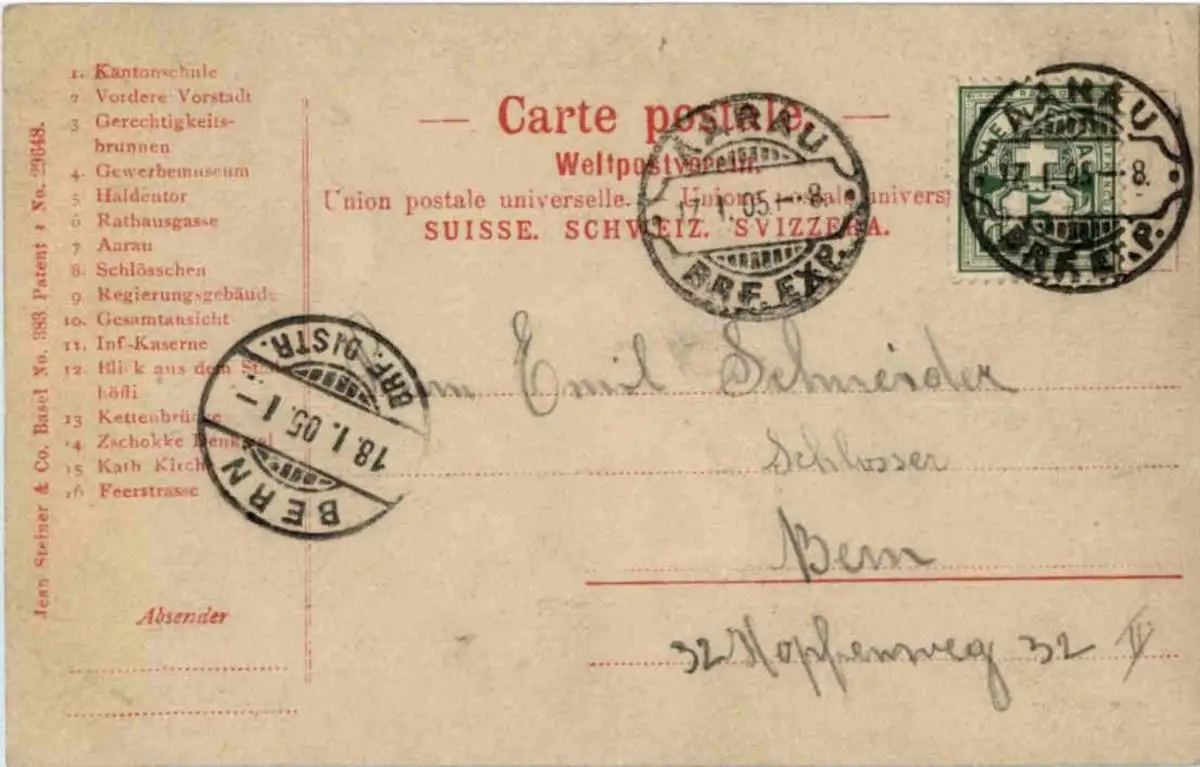 1. Kantonschule
2 Vordere Vorstadt
3 Gerechtigkeits-
brunnen
4. Gewerbemuseum
5 Haldentor
6 Rathausgasse
7 Aarau
8. Schlösschen
9 Regierungsgebäude
10. Gesamtansicht
11. Inf-Kaserne
12. Blick aus dem
höfli
13 Kettenbrücke
14. Zschokke Denkmal
15 Kath Kirch
16 Feerstrasse
Jean Steiner & Co. Basel No. 383 Patent • No. 29648.
Absender
— Carte postale. —
Weltpostverein.
Union postale universelle. — Union postale univers
SUISSE. SCHWEIZ. SVIZZERA.
AARAU
17. I. 05 — 8
BRF. EXP.
AARAU
17. I. 05 — 8.
BRF. EXP.
BRF. DISTR.
18. I. 05. I —
BERN
Emil Schneider
Schlosser
Bern
32 Hopfenweg 32 II